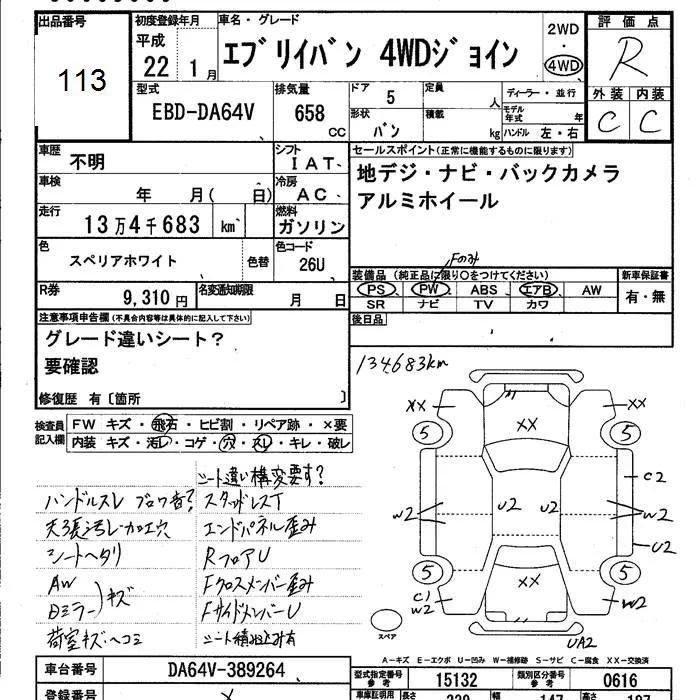 出品番号
113
初度登録年月
平成
22 1月
車名・グレード
エブリイバン 4WDジョイン
2WD
・
4WD
評価点
R
外装 内装
C C
型式
EBD-DA64V
排気量
658
CC
ドア 5
形状
バン
定員
人
積載
kg
ディーラー・並行
モデル年式 年
ハンドル 左・右
車歴
不明
シフト
IAT
車検
年 月( 日)
冷房
AC
走行
13万4千683 km
燃料
ガソリン
色
スペリアホワイト
色替
色コード
26U
R券
9,310円
名変通知期限
月 日
セールスポイント(正常に機能するものに限ります)
地デジ・ナビ・バックカメラ
アルミホイール
Fのみ
装備品 (純正品に限り○をつけてください)
PS PW ABS エアB AW
SR ナビ TV カワ
新車保証書
有・無
後日品
注意事項申告欄(不具合内容等は具体的に記入して下さい)
グレード違いシート?
要確認
修復歴 有〔箇所 〕
検査員
記入欄
FW キズ・飛石・ヒビ割・リペア跡・×要
内装 キズ・汚レ・コゲ・穴・スレ・キレ・破レ
シート違い構変要す?
ハンドルスレ ブロワ音? スタッドレスT
天張汚レ・加工穴 エンドパネル歪み
シートヘタリ RフロアU
AW Fクロスメンバー歪み
Dミラー)キズ FサイドメンバーU
荷室キズ・ヘコミ シート積込み有
134,683km
XX XX XX
5 5
C2
W2 U2 U2 W2
U2
5 5
XX
C1
W2 W2
UA2
スペア
A-キズ E-エクボ U-凹み W-補修跡 S-サビ C-腐食 XX-交換済
車台番号
DA64V-389264
型式指定番号
参考
15132
類別区分番号
参考
0616
登録番号
車庫証明用
長さ